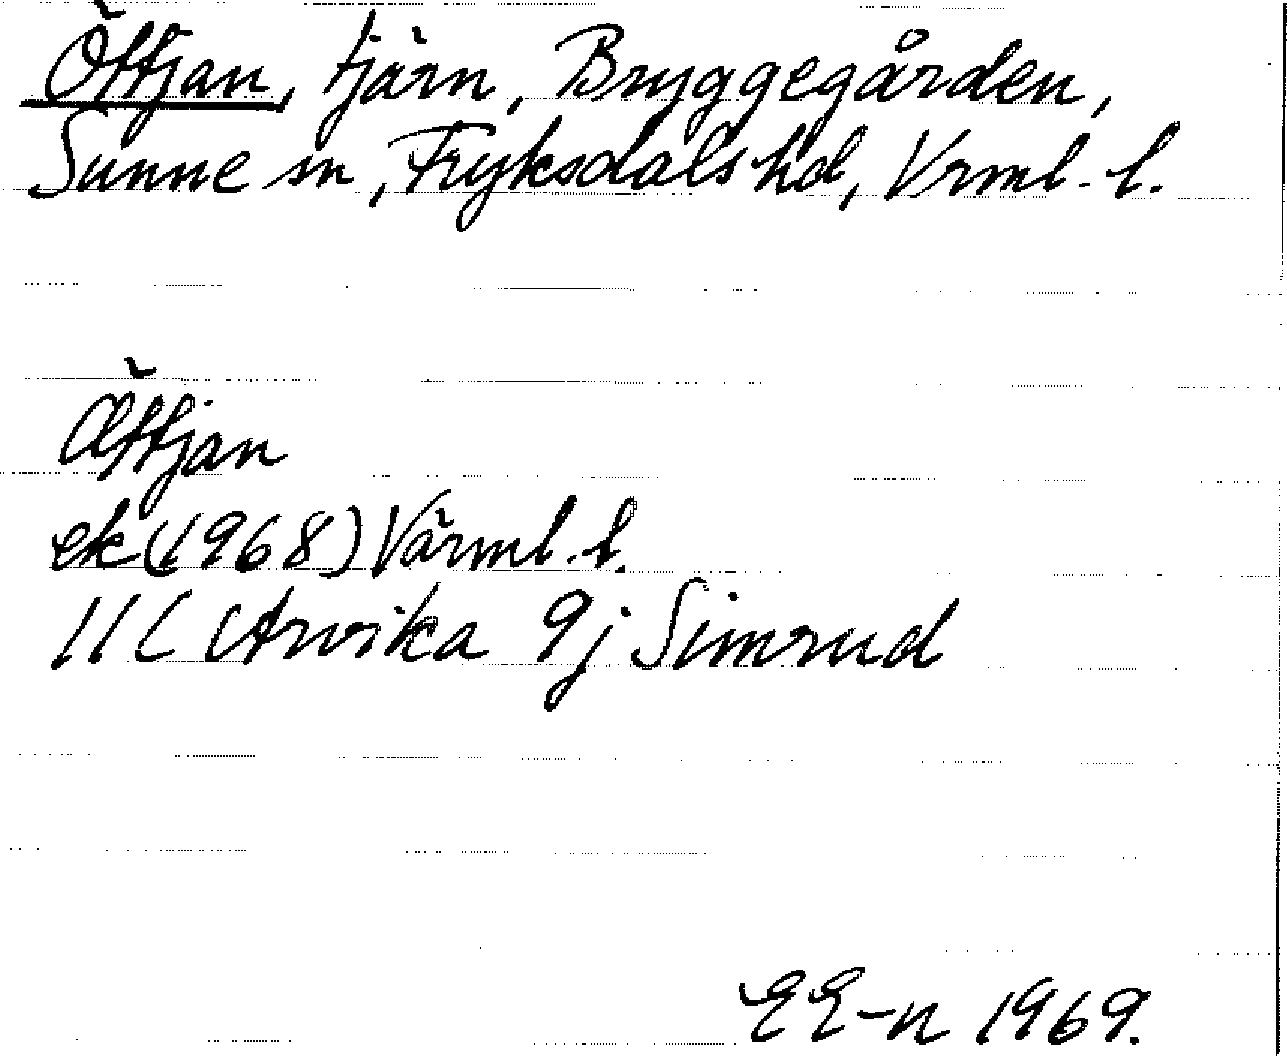 Öttjan, tjärn, Bryggegården,
Sunne sn, Fryksdals hd, Vrml. l.
Öttjan
ek (1968) Värml. l.
11C Arvika 9j Simrud
EE-n 1969.